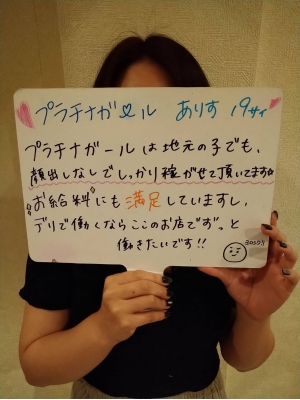 プラチナガール ありす 19サイ
プラチナガールは地元の子でも、
顔出しなしでしっかり稼がせて頂いてます☆
"お給料"にも満足していますし、
デリで働くならここのお店です。と
働きたいです!!